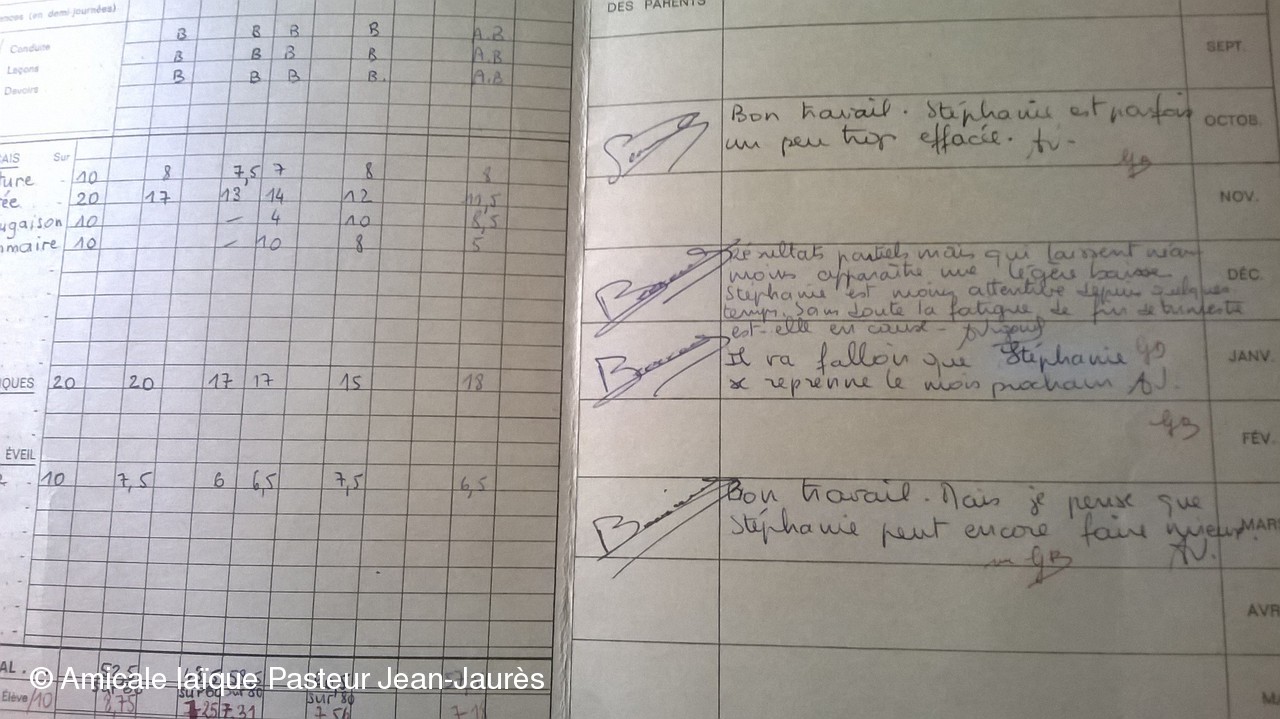 ences (en demi-journées)
Conduite B B B B A.B
Leçons B B B B A.B
Devoirs B B B B. A.B
AIS Sur
ture 10 8 7,5 7 8 8
ée 20 17 13 14 12 11,5
ugaison 10 - 4 10 8,5
mmaire 10 - 10 8 5
IQUES 20 20 17 17 15 18
ÉVEIL
10 7,5 6 6,5 7,5 6,5
AL.
Élève/10 8,75 7,25 7,31 7,56
sur 80
DES PARENTS
SEPT.
Bon travail. Stéphanie est parfois
un peu trop effacée. AV-
OCTOB.
GB
NOV.
Résultats partiels mais qui laissent néan
moins apparaître une légère baisse
Stéphanie est moins attentive depuis quelques
temps, sans doute la fatigue de fin de trimestre
est-elle en cause-
DÉC.
Il va falloir que Stéphanie
se reprenne le mois prochain AV.
JANV.
GB
FÉV.
Bon travail. Mais je pense que
Stéphanie peut encore faire mieux.
AV.
MARS
GB
AVR
© Amicale laïque Pasteur Jean-Jaurès